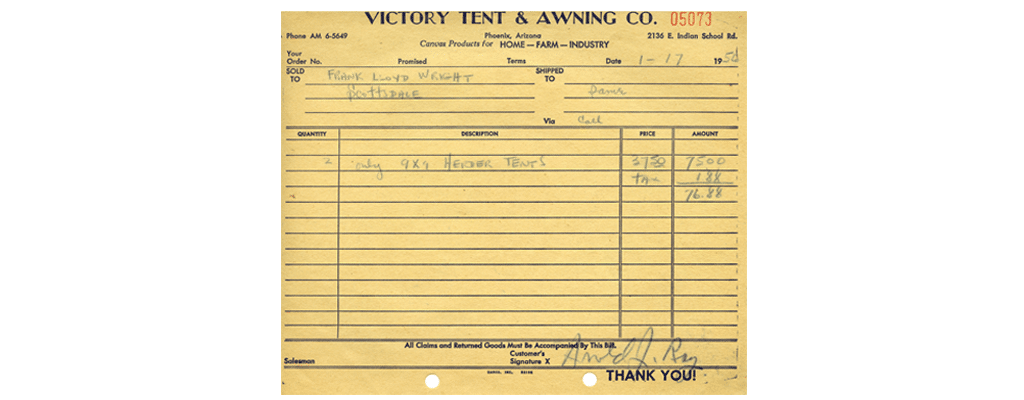 VICTORY TENT & AWNING CO. 05073
Phone AM 6-5649 Phoenix, Arizona 2136 E. Indian School Rd.
Canvas Products for HOME—FARM—INDUSTRY
Your
Order No. Promised Terms Date 1-17 19
SOLD TO FRANK LLOYD WRIGHT SHIPPED TO
SCOTTSDALE Same
Via Call
QUANTITY DESCRIPTION PRICE AMOUNT
2 only 9X9 HERDER TENTS 3750 7500
tax 188
76.88
All Claims and Returned Goods Must Be Accompanied By This Bill.
Salesman Customer's Signature X
THANK YOU!